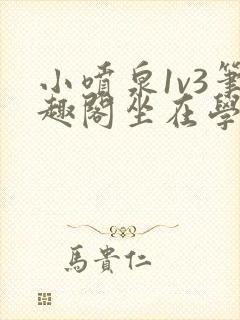 小噴泉1v3筆
趣閣坐在學
馬貴仁